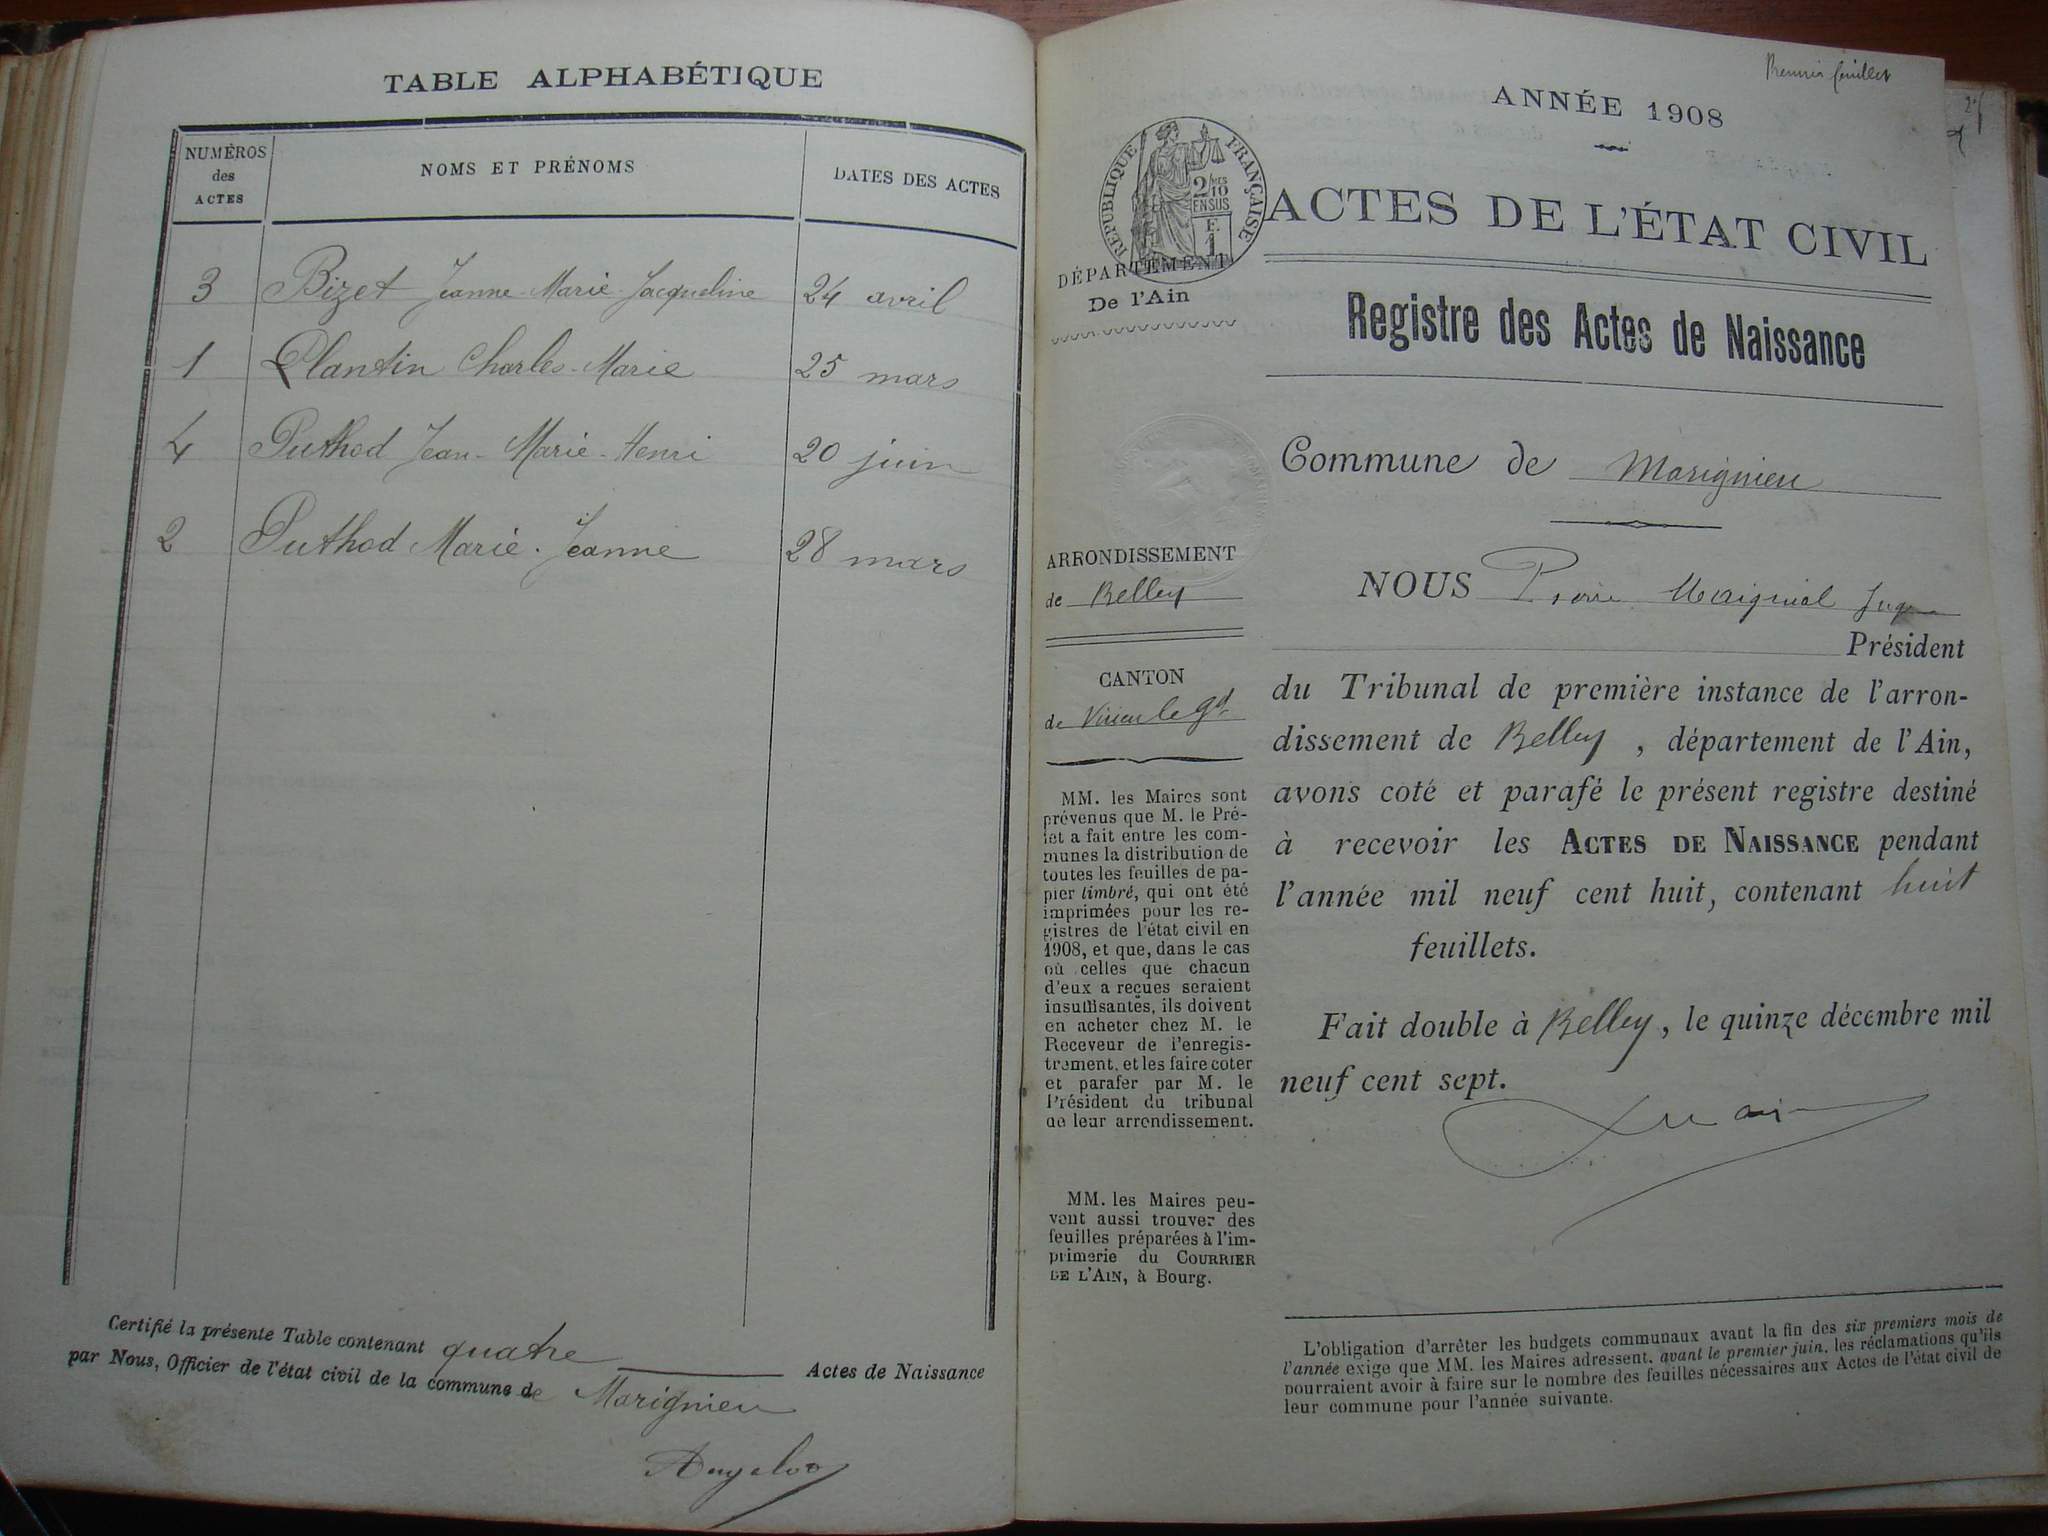 TABLE ALPHABÉTIQUE
NUMÈROS des ACTES
NOMS ET PRÉNOMS
DATES DES ACTES
3 Bizet Jeanne-Marie-Jacqueline 24 avril
1 Plantin Charles-Marie 25 mars
4 Puthod Jean-Marie-Henri 20 juin
2 Puthod Marie-Jeanne 28 mars
Certifié la présente Table contenant quatre Actes de Naissance
par Nous, Officier de l'état civil de la commune de Marignieu
Premier feuillet
ANNÉE 1908
RÉPUBLIQUE FRANÇAISE
2/10
EN SUS
F.
1
ACTES DE L'ÉTAT CIVIL
DÉPARTEMENT
De l'Ain
Registre des Actes de Naissance
Commune de Marignieu
ARRONDISSEMENT
de Belley
CANTON
de Virieu le Gd
MM. les Maires sont
prévenus que M. le Pré-
fet a fait entre les com-
munes la distribution de
toutes les feuilles de pa-
pier timbré, qui ont été
imprimées pour les re-
gistres de l'état civil en
1908, et que, dans le cas
où celles que chacun
d'eux a reçues seraient
insuffisantes, ils doivent
en acheter chez M. le
Receveur de l'enregis-
trement, et les faire coter
et parafer par M. le
Président du tribunal
de leur arrondissement.
MM. les Maires peu-
vent aussi trouver des
feuilles préparées à l'im-
primerie du COURRIER
DE L'AIN, à Bourg.
NOUS Pierre
Président
du Tribunal de première instance de l'arron-
dissement de Belley, département de l'Ain,
avons coté et parafé le présent registre destiné
à recevoir les ACTES DE NAISSANCE pendant
l'année mil neuf cent huit, contenant huit
feuillets.
Fait double à Belley, le quinze décembre mil
neuf cent sept.
L'obligation d'arrêter les budgets communaux avant la fin des six premiers mois de
l'année exige que MM. les Maires adressent, avant le premier juin, les réclamations qu'ils
pourraient avoir à faire sur le nombre des feuilles nécessaires aux Actes de l'état civil de
leur commune pour l'année suivante.